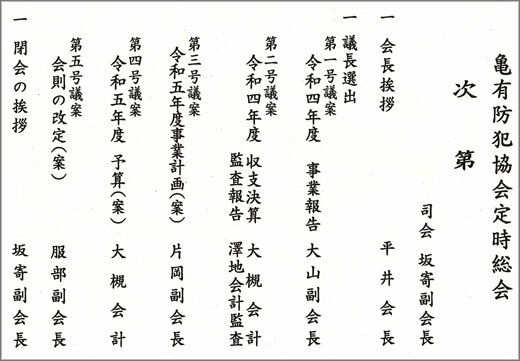 亀有防犯協会定時総会
次第
司会 坂寄副会長
一 会長挨拶 平井会長
一 議長選出
第一号議案
令和四年度 事業報告 大山副会長
第二号議案
令和四年度 収支決算 大槻会計
監査報告 澤地会計監査
第三号議案
令和五年度事業計画(案) 片岡副会長
第四号議案
令和五年度 予算(案) 大槻会計
第五号議案
会則の改定(案) 服部副会長
一 閉会の挨拶 坂寄副会長